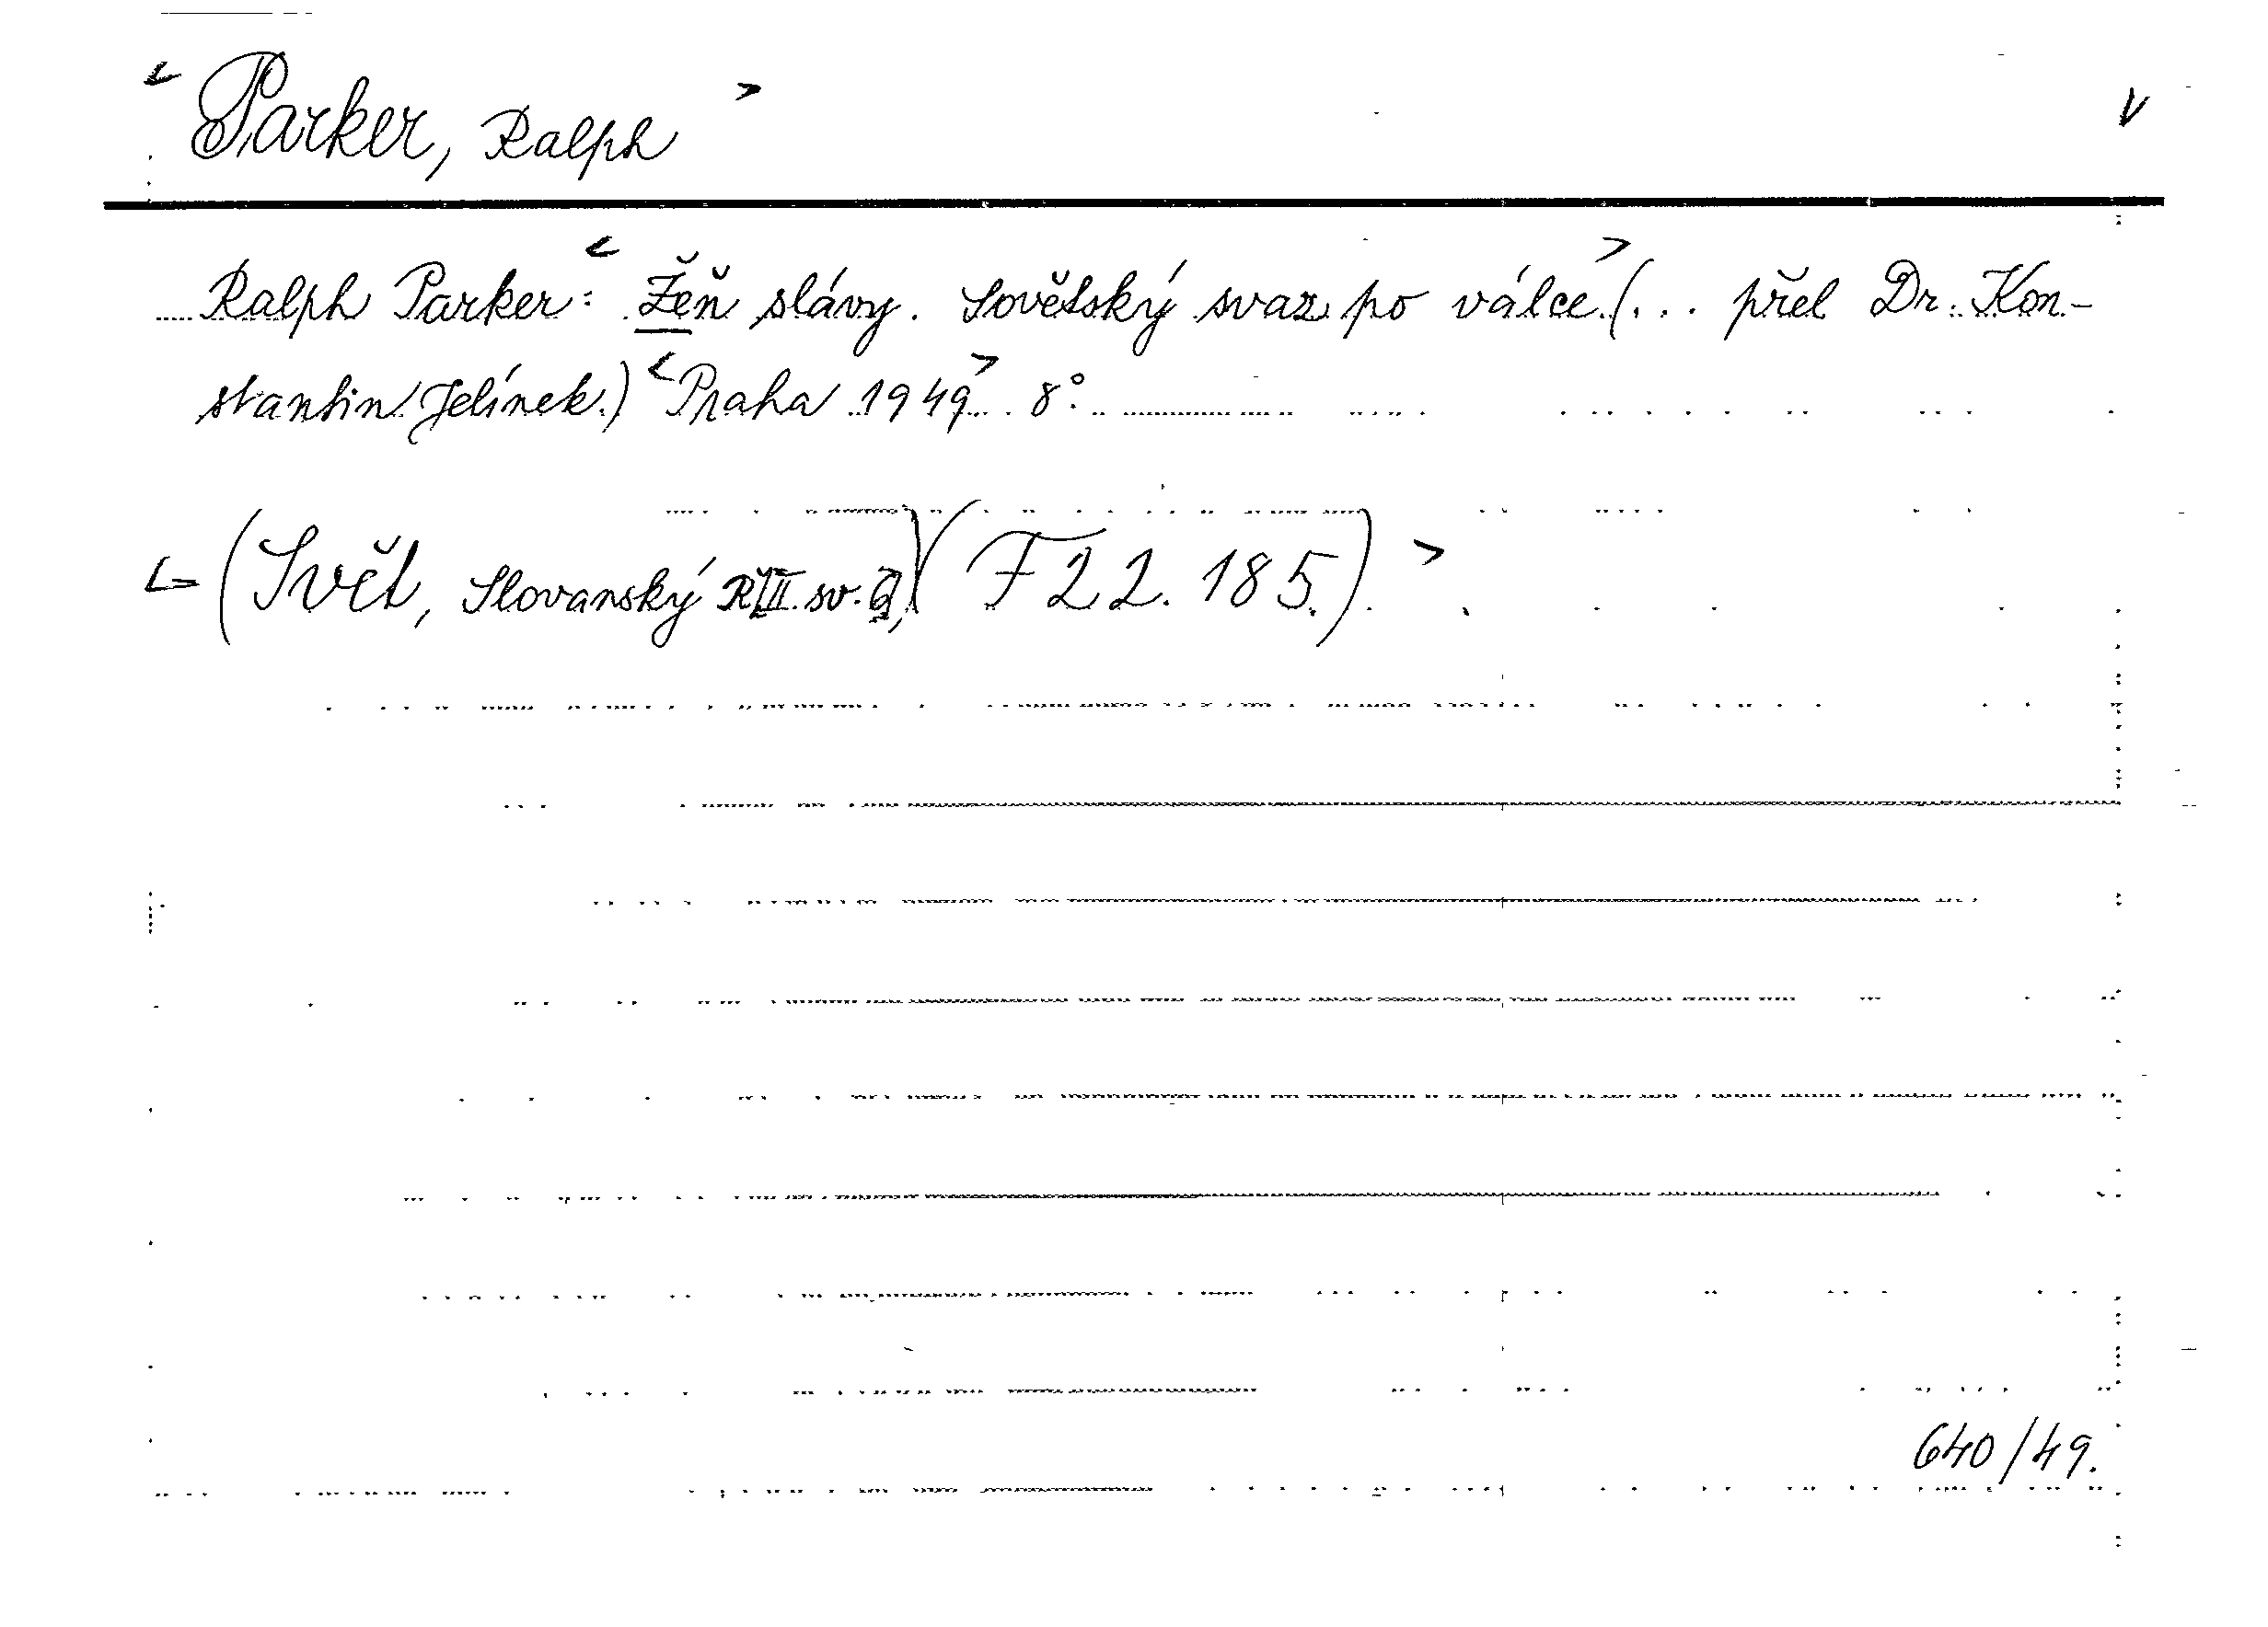 < Parker, Ralph > V
Ralph Parker: < Žeň slávy. Sovětský svaz po válce > (... přel Dr. Kon-
stantin Jelínek.) < Praha 1949 > 8°
<= (Svět, Slovanský Ř III. sv. ) (F 22.185.) >
640/49.